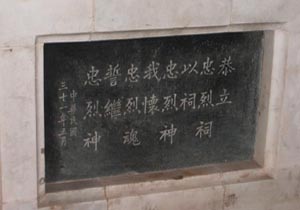 恭立
忠烈祠
以祠
忠烈神
我懷
忠烈魂
誓繼
忠烈神
中華民國
三十一年 月